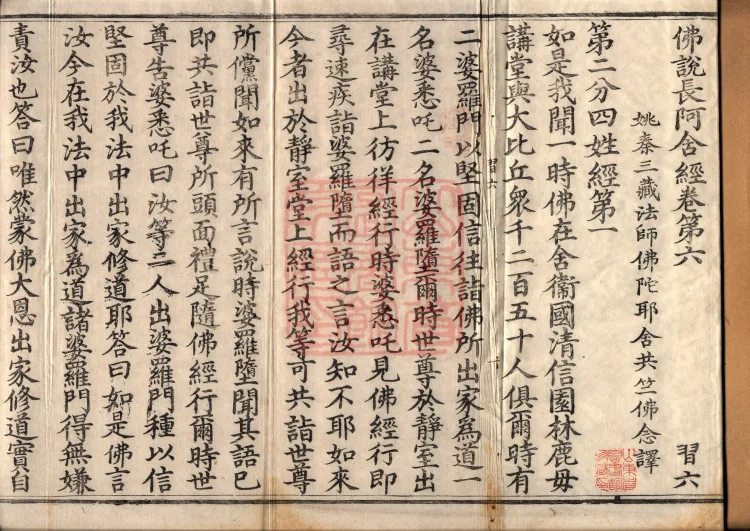 佛說長阿含經卷第六
習六
姚秦三藏法師佛陀耶舍共竺佛念譯
第二分四姓經第一
如是我聞一時佛在舍衛國清信園林鹿母
講堂與大比丘眾千二百五十人俱爾時有
二婆羅門以堅固信往詣佛所出家為道一
習六
名婆悉吒二名婆羅墮爾時世尊於靜室出
在講堂上彷徉經行時婆悉吒見佛經行即
尋速疾詣婆羅墮而語之言汝知不耶如來
今者出於靜室堂上經行我等可共詣世尊
所儻聞如來有所言說時婆羅墮聞其語已
即共詣世尊所頭面禮足隨佛經行爾時世
尊告婆悉吒曰汝等二人出婆羅門種以信
堅固於我法中出家修道耶答曰如是佛言
汝今在我法中出家為道諸婆羅門得無嫌
責汝也答曰唯然蒙佛大恩出家修道實自